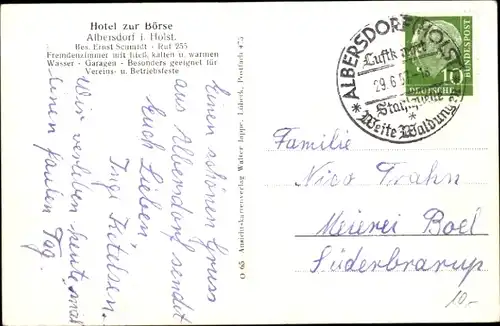 Hotel zur Börse
Albersdorf i. Holst.
Bes. Ernst Schmidt · Ruf 255
Fremdenzimmer mit fließ. kalten u. warmen
Wasser · Garagen · Besonders geeignet für
Vereins- u. Betriebsfeste
Einen schönen Gruss
aus Albersdorf sendet
Euch Lieben
Inge
Wir verleben heute mal
einen faulen Tag.
O 65 Ansichtskartenverlag Walter Jappe, Lübeck, Postfach 475
ALBERSDORF (HOLST)
Luftkurort
29.6.5
Weite Waldung
10
DEUTSCHE
BUNDESPOST
Familie
Nico Trahn
Meierei Boel
Süderbrarup
10,-